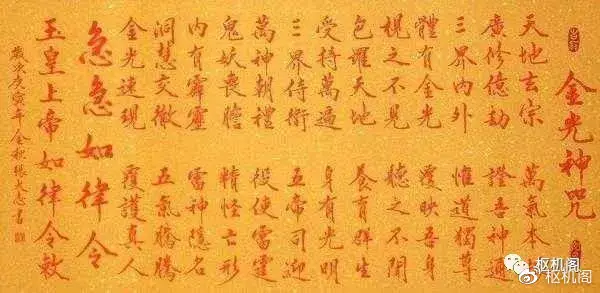 金光神咒
天地玄宗 萬氣本根
廣修億劫 證吾神通
三界內外 惟道獨尊
體有金光 覆映吾身
視之不見 聽之不聞
包羅天地 養育群生
受持萬遍 身有光明
三界侍衛 五帝司迎
萬神朝禮 役使雷霆
鬼妖喪膽 精怪亡形
內有霹靂 雷神隱名
洞慧交徹 五氣騰騰
金光速現 覆護真人
急急如律令
玉皇上帝如律令敕
歲次庚寅年金秋張大志書
枢机阁
枢机阁